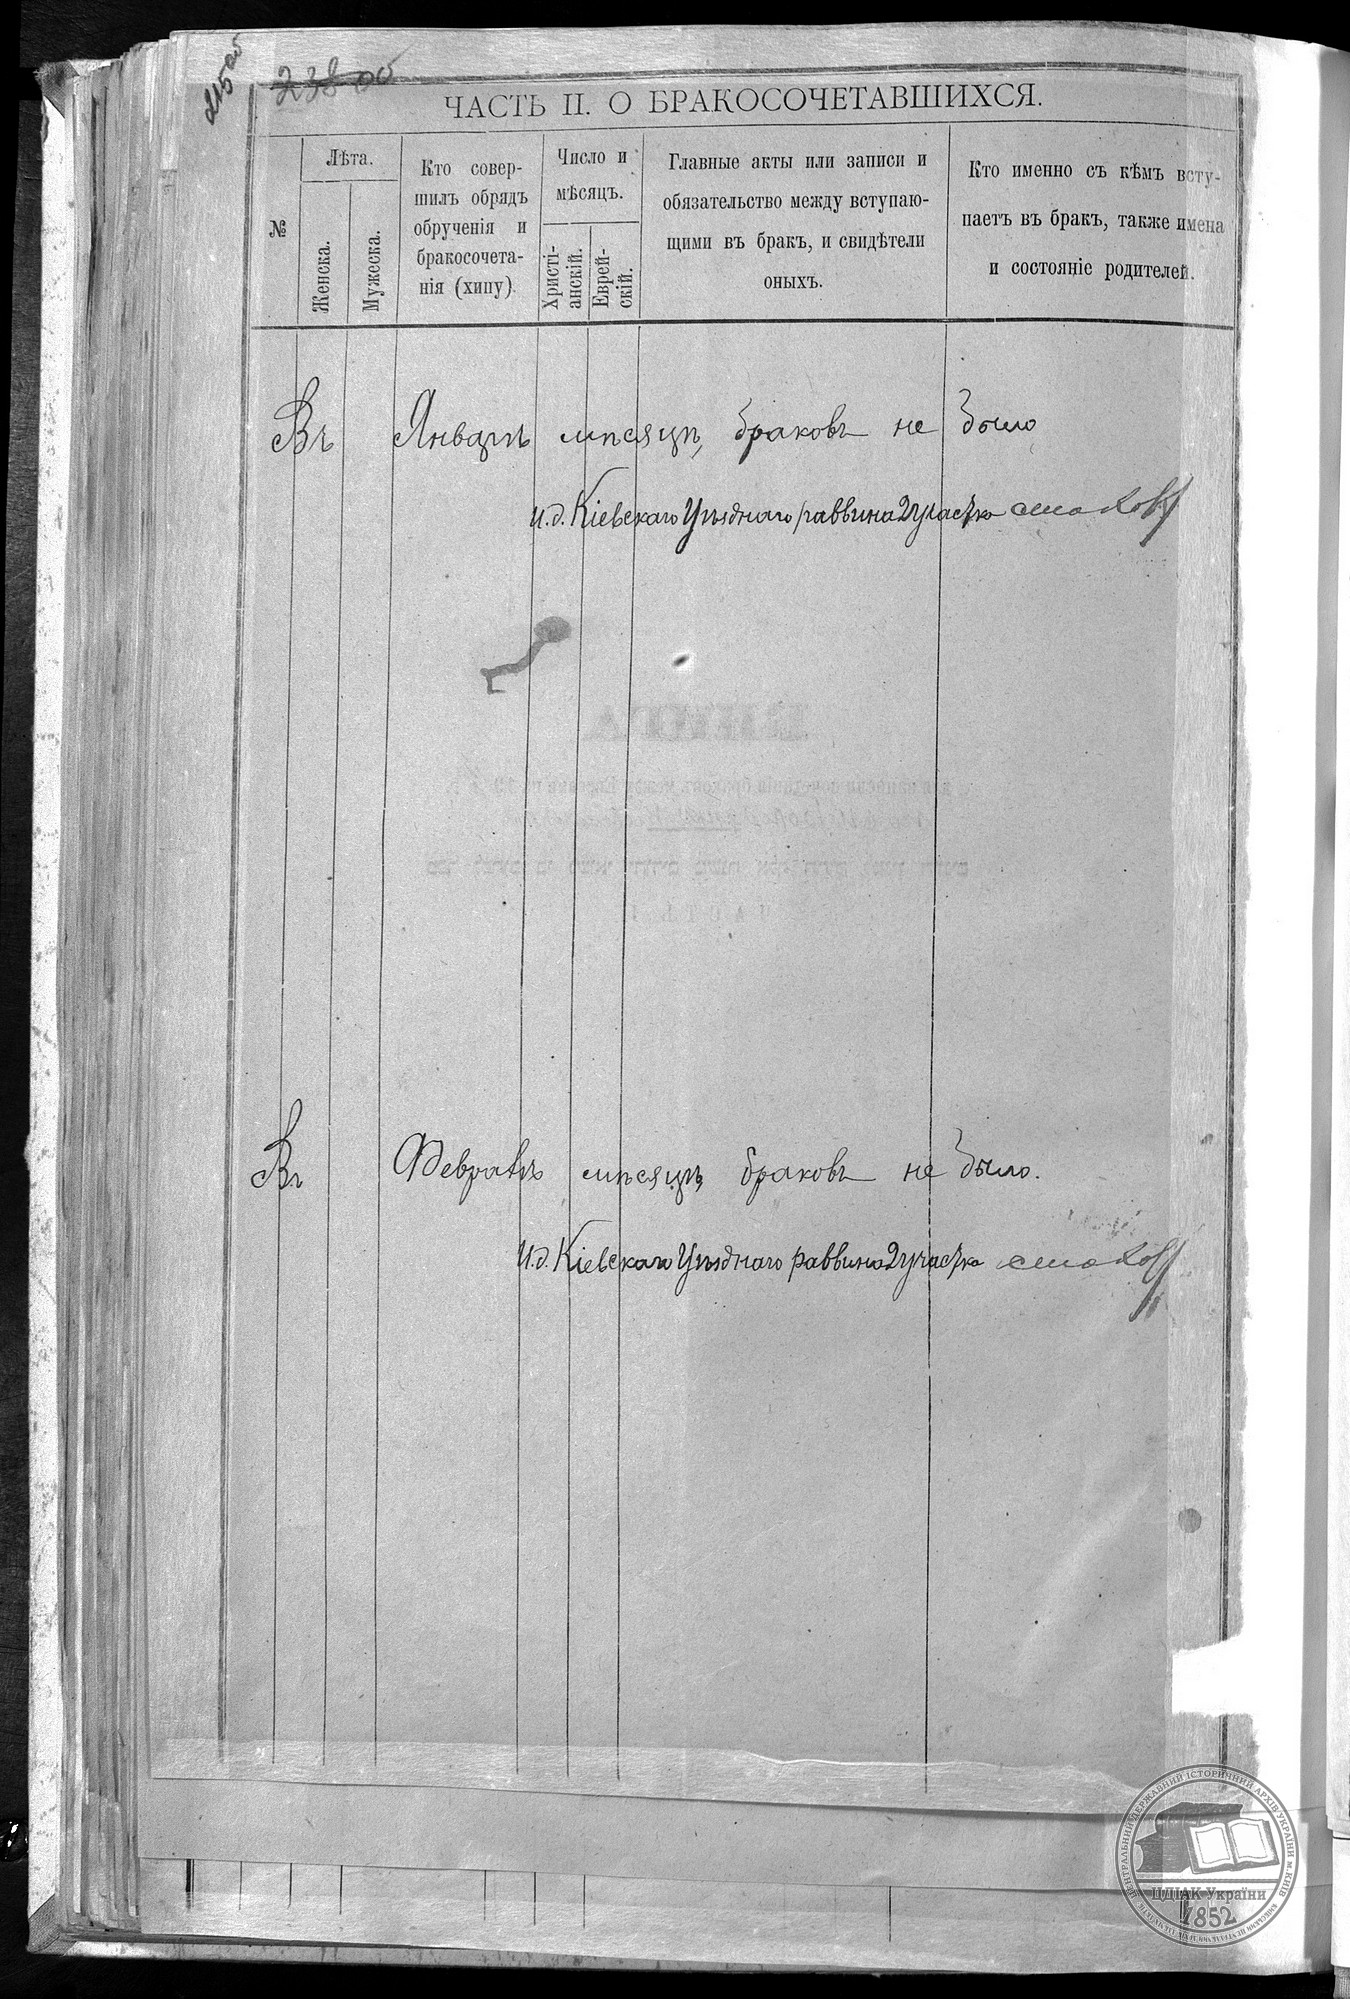 215 об
238 об
ЧАСТЬ II. О БРАКОСОЧЕТАВШИХСЯ.
№
Лѣта.
Женска.
Мужеска.
Кто совер-
шилъ обрядъ
обрученія и
бракосочета-
нія (хипу)
Число и
мѣсяцъ.
Христі-
анскій.
Еврей-
скій.
Главные акты или записи и
обязательство между вступаю-
щими въ бракъ, и свидѣтели
оныхъ.
Кто именно съ кѣмъ всту-
паетъ въ бракъ, также имена
и состояніе родителей.
Въ Январѣ мѣсяцѣ браковъ не было
И.д. Кіевскаго Уѣзднаго раввина 2 участка
Въ Февралѣ мѣсяцѣ браковъ не было.
И.д. Кіевскаго Уѣзднаго раввина 2 участка
КНИГА
ЦЕНТРАЛЬНИЙ ДЕРЖАВНИЙ ІСТОРИЧНИЙ АРХІВ УКРАЇНИ м. КИЇВ
ЦДІАК України
1852